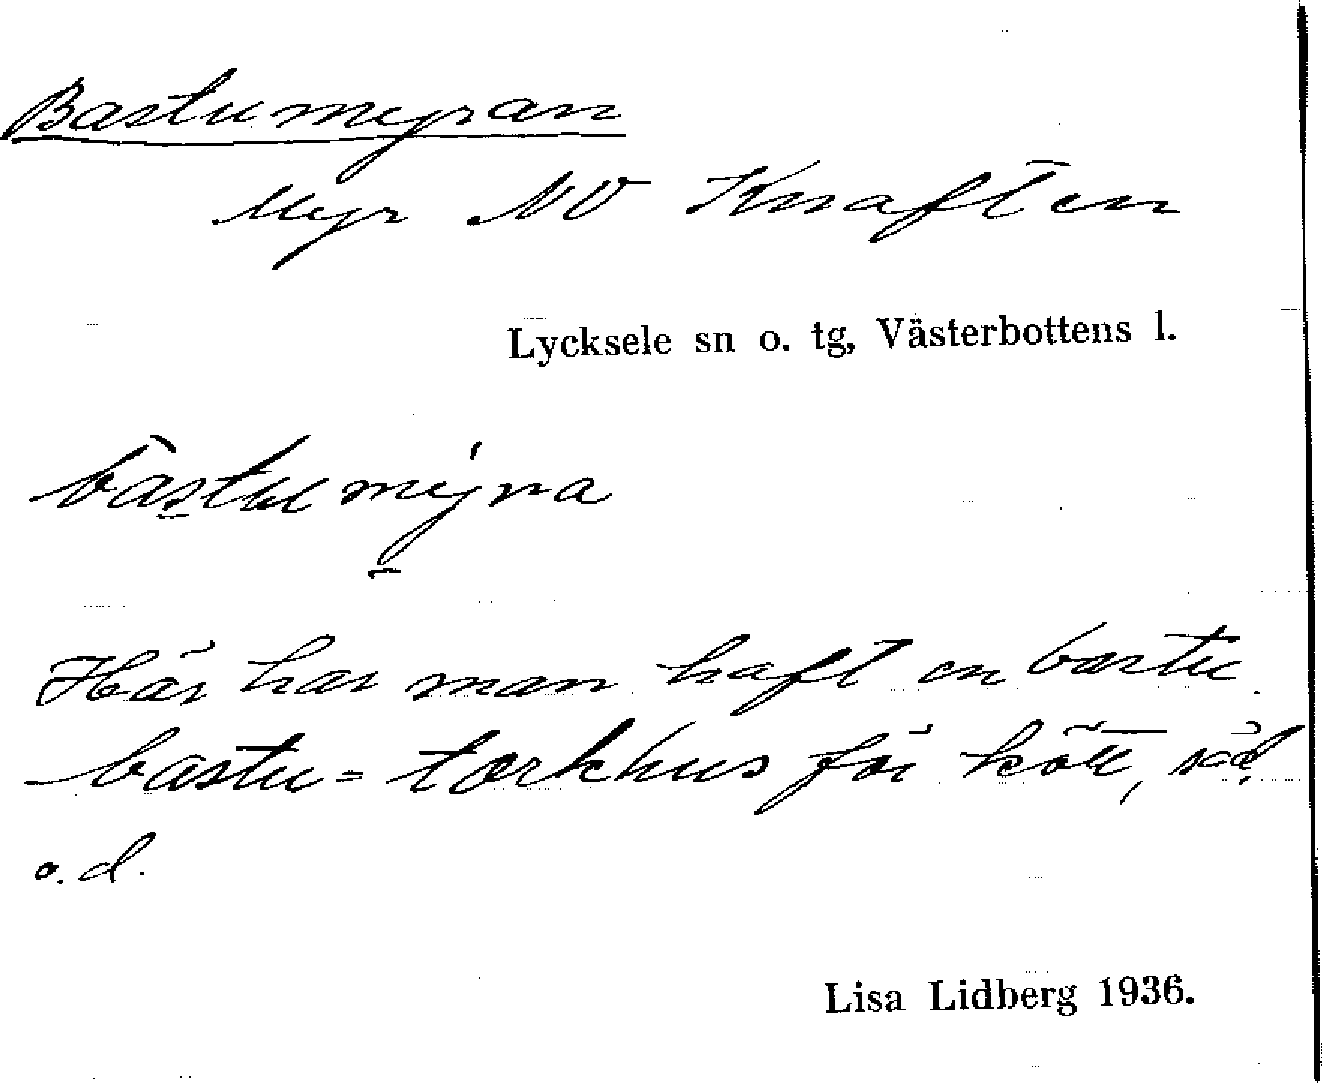 Bastumyran
Myr NV Knaften
Lycksele sn o. tg, Västerbottens l.
bastumyra
Här har man haft en bastu
bastu = torkhus för kött, säd
o.d.
Lisa Lidberg 1936.